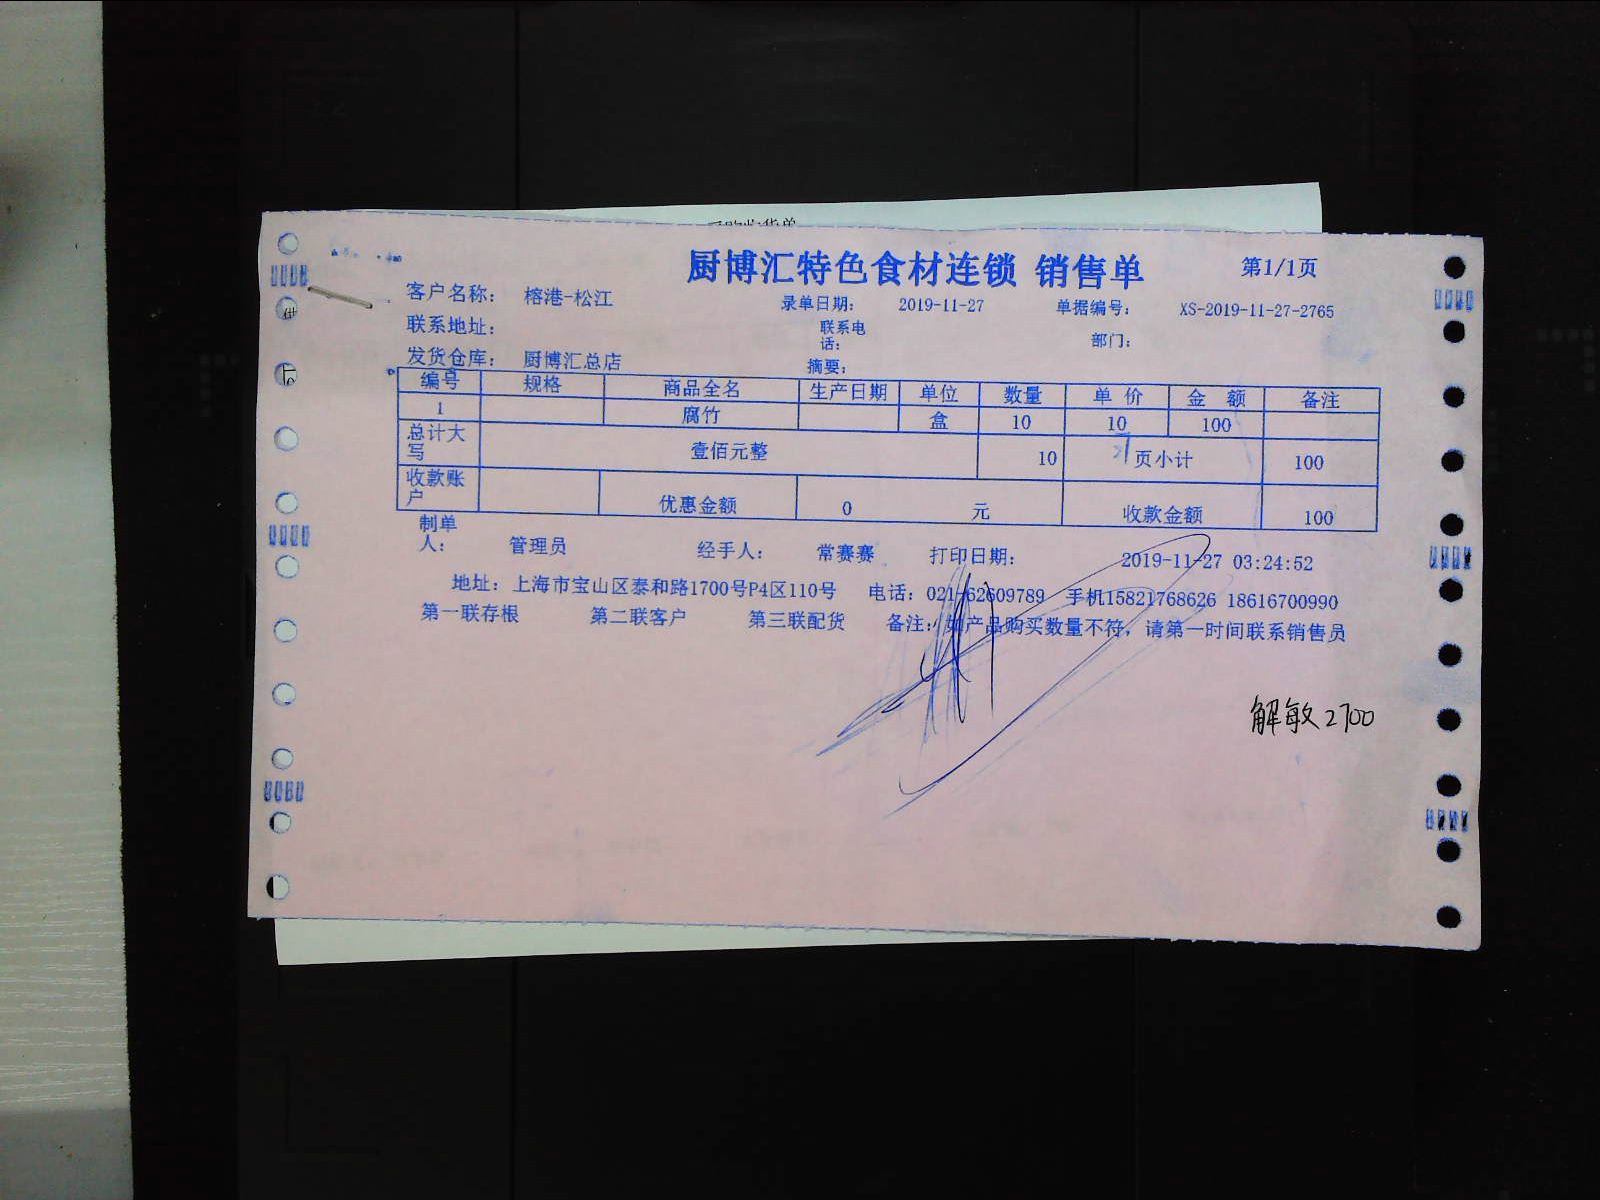 厨博汇特色食材连锁 销售单 第1/1页
客户名称： 榕港-松江 录单日期： 2019-11-27 单据编号： XS-2019-11-27-2765
联系地址： 联系电话： 部门：
发货仓库： 厨博汇总店 摘要：
编号 规格 商品全名 生产日期 单位 数量 单价 金额 备注
1 腐竹 盒 10 10 100
总计大写 壹佰元整 10 页小计 100
收款账户 优惠金额 0 元 收款金额 100
制单人： 管理员 经手人： 常赛赛 打印日期： 2019-11-27 03:24:52
地址：上海市宝山区泰和路1700号P4区110号 电话：021-62609789 手机15821768626 18616700990
第一联存根 第二联客户 第三联配货 备注：如产品购买数量不符，请第一时间联系销售员
解敏2700